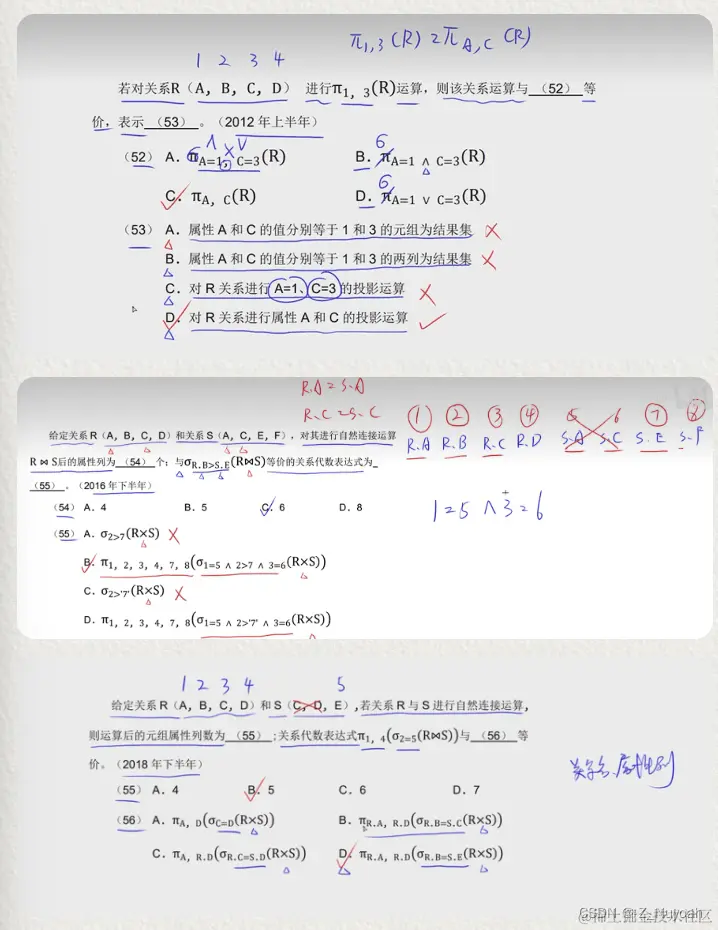 π1,3(R) 2 πA,C (R)
1 2 3 4
若对关系R（A，B，C，D） 进行π1，3(R)运算，则该关系运算与 （52） 等
价，表示 （53） 。（2012年上半年）
∧ ∨
6
（52） A．πA=1，C=3(R) B．πA=1 ∧ C=3(R)
6
C．πA，C(R) D．πA=1 ∨ C=3(R)
（53） A．属性 A 和 C 的值分别等于 1 和 3 的元组为结果集
B．属性 A 和 C 的值分别等于 1 和 3 的两列为结果集
C．对 R 关系进行 A=1、C=3 的投影运算
D．对 R 关系进行属性 A 和 C 的投影运算
R.A = S.A
R.C = S.C
① ② ③ ④ 5 6 ⑦ ⑧
R.A R.B R.C R.D S.A S.C S.E S.F
给定关系 R（A，B，C，D）和关系 S（A，C，E，F），对其进行自然连接运算
R⋈S后的属性列为 （54） 个；与σR.B>S.E(R⋈S)等价的关系代数表达式为
（55） 。（2016年下半年）
（54） A．4 B．5 C．6 D．8
1=5 ∧ 3=6
（55） A．σ2>7(R×S)
B．π1，2，3，4，7，8(σ1=5 ∧ 2>7 ∧ 3=6(R×S))
C．σ2>'7'(R×S)
D．π1，2，3，4，7，8(σ1=5 ∧ 2>'7' ∧ 3=6(R×S))
1 2 3 4 5
给定关系 R（A，B，C，D）和 S（C，D，E），若关系 R 与 S 进行自然连接运算，
则运算后的元组属性列数为 （55） ；关系代数表达式π1，4(σ2=5(R⋈S))与 （56） 等
价。（2018年下半年）
（55） A．4 B．5 C．6 D．7
（56） A．πA，D(σC=D(R×S)) B．πR.A，R.D(σR.B=S.C(R×S))
C．πA，R.D(σR.C=S.D(R×S)) D．πR.A，R.D(σR.B=S.E(R×S))